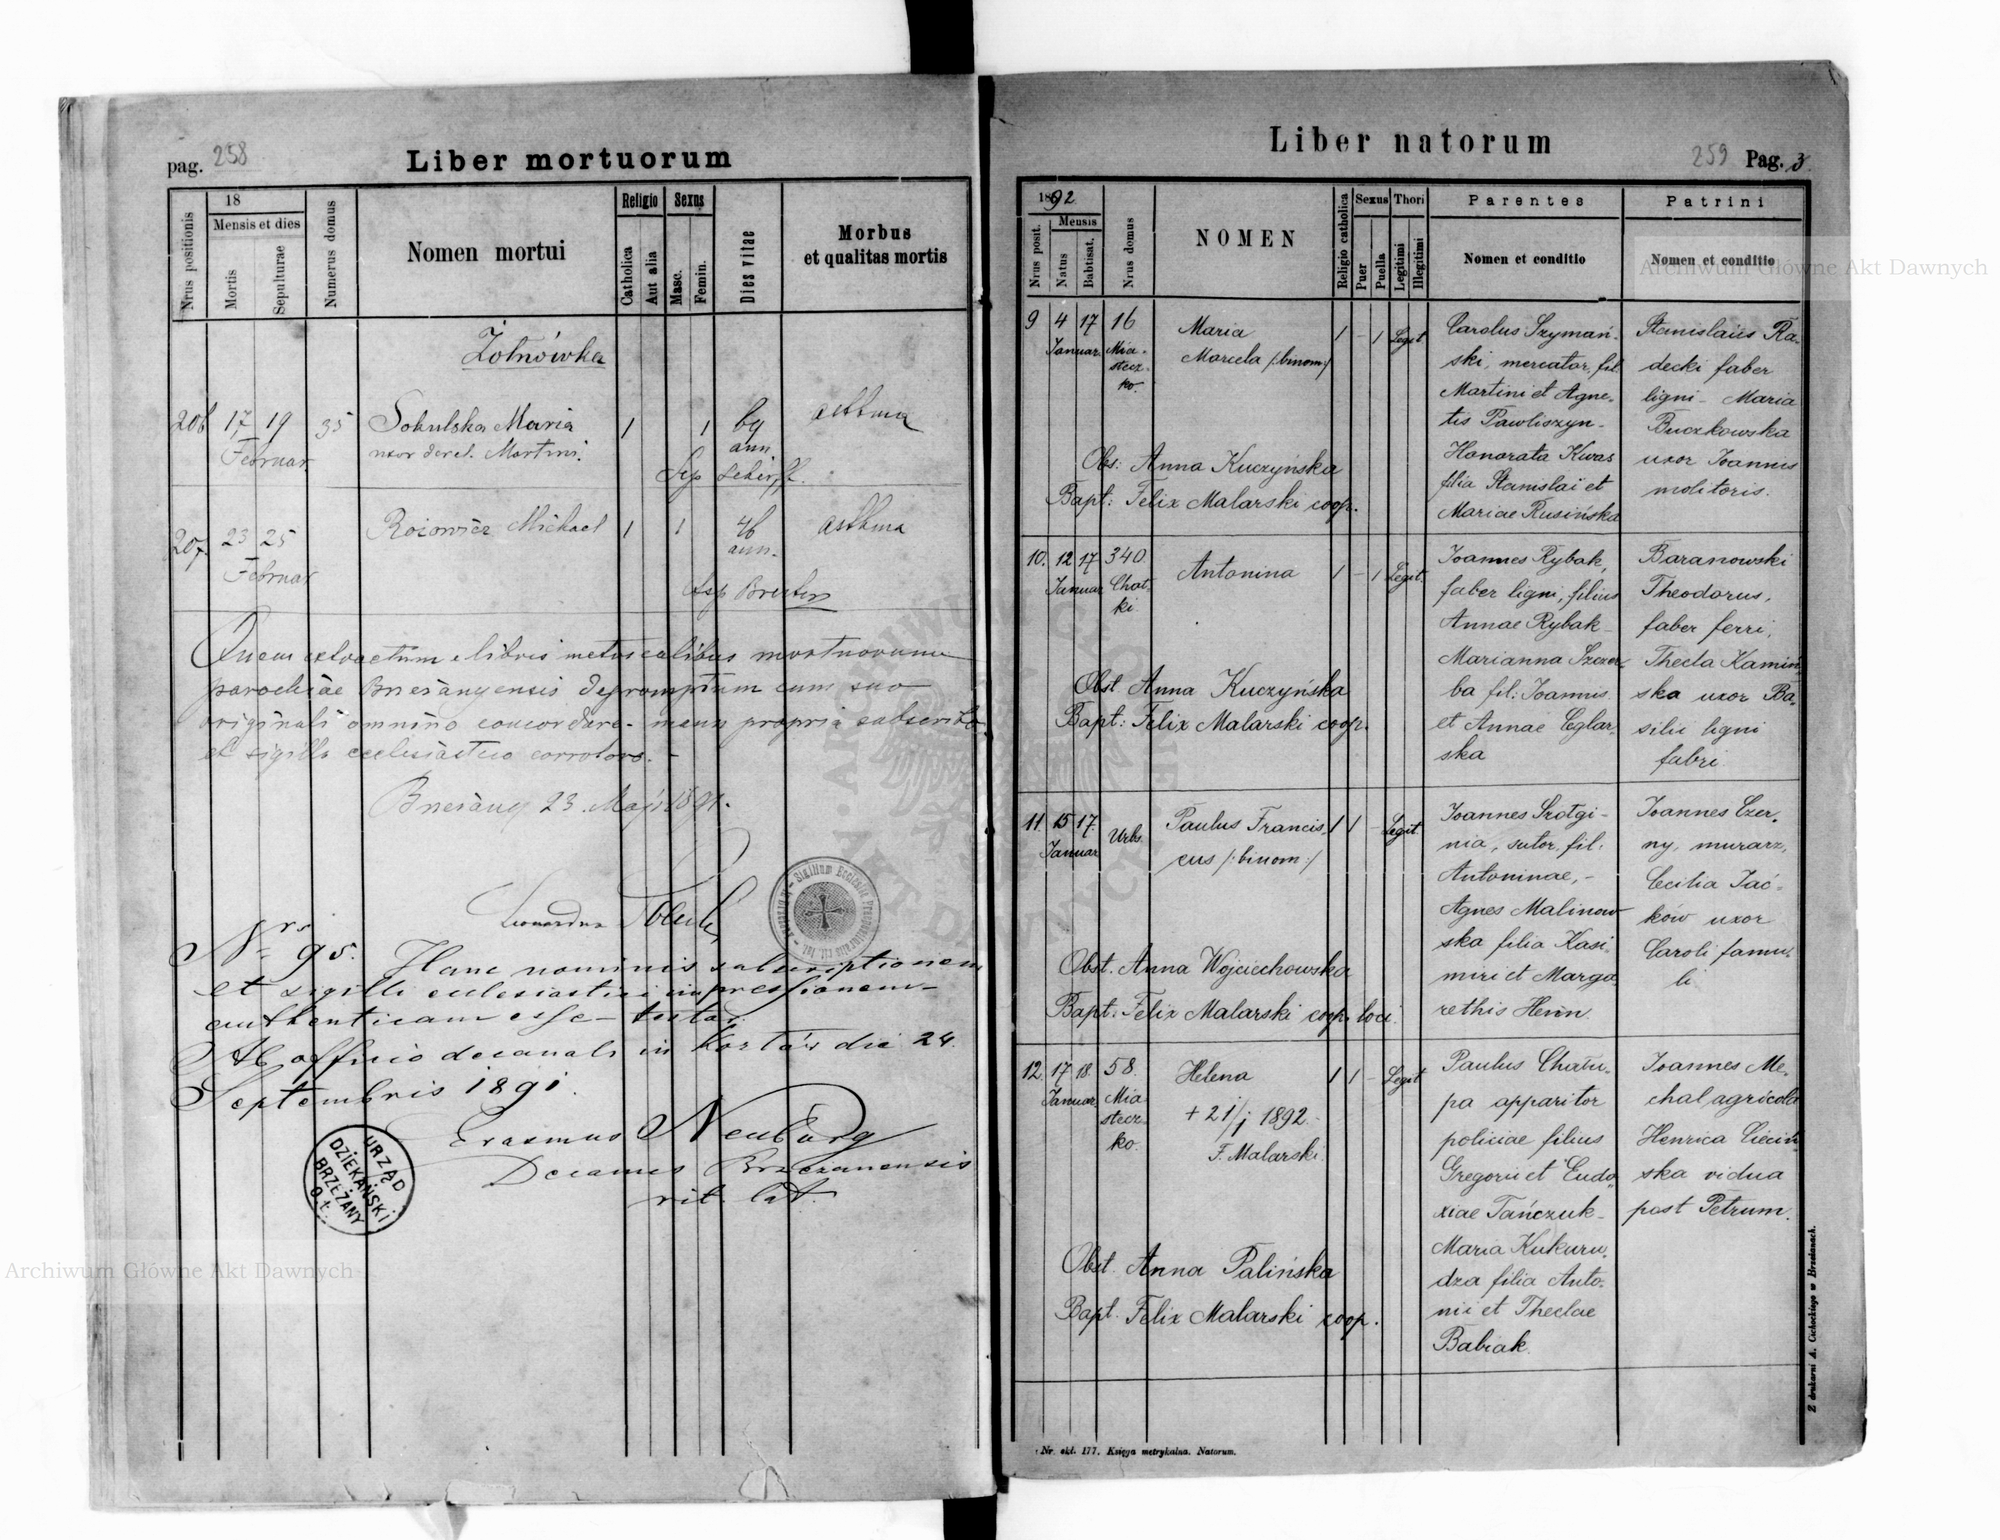 pag. 258
Liber mortuorum
Nrus positionis
18
Mensis et dies
Mortis
Sepulturae
Numerus domus
Nomen mortui
Religio
Catholica
Aut alia
Sexus
Masc.
Femin.
Dies vitae
Morbus
et qualitas mortis
Żołnówka
206 17 19 35 Sokulska Maria 1 1 69 asthma
Februar. uxor derel. Martini. ann.
207 23 25 Michael 1 1 46 asthma
Februar ann.
Quem extractum e libris metricalibus mortuorum
parochiae Brzeżanyensis depromptum cum suo
originali omnino concordare manu propria subscribo
et sigillo ecclesiastico corroboro.
Brzeżany 23. Maji 1891.
Leonardus
Nrs 95. Hanc nominis subscriptionem
et sigilli ecclesiastici impressionem
authenticam esse testor.
Ab officio decanali in die 24.
Septembris 1891.
Erasmus Neuburg
Decanus Brzezanensis
rit. lat.
URZĄD
DZIEKAŃSKI
BRZEŻANY
o. ł.
Archiwum Główne Akt Dawnych
Liber natorum
259 Pag. 3.
1892
Nrus posit.
Mensis
Natus
Babtisat.
Nrus domus
NOMEN
Religio catholica
Sexus
Puer
Puella
Thori
Legitimi
Illegitimi
Parentes
Nomen et conditio
Patrini
Nomen et conditio
Archiwum Główne Akt Dawnych
9 4 17 16 Maria 1 - 1 Legit
Januar. Mia- Marcela /:binom:/
stecz-
ko.
Carolus Szymań-
ski, mercator, fil.
Martini et Agne-
tis Pawliszyn -
Honorata Kwas
filia Stanislai et
Mariae Rusińska
Stanislaus Ra-
decki faber
ligni - Maria
Buczkowska
uxor Joannis
molitoris.
Obs: Anna Kuczyńska
Bapt: Felix Malarski coop.
10. 12 17 340 Antonina 1 - 1 Legit.
Januar Chat-
ki
Joannes Rybak,
faber ligni, filius
Annae Rybak -
Marianna Szczer-
ba fil: Joannis
et Annae Ceglar-
ska
Baranowski
Theodorus,
faber ferri,
Thecla Kamiń-
ska uxor Ba-
silii ligni
fabri.
Obst Anna Kuczyńska
Bapt: Felix Malarski coop.
11 15 17. Urbs. Paulus Francis- 1 1 - Legit
Januar cus /:binom:/
Joannes Srotgi-
nia, sutor, fil.
Antoninae, -
Agnes Malinow
ska filia Kasi-
miri et Marga-
rethis Henn.
Joannes Czer-
ny, murarz,
Cecilia Jać-
ków uxor
Caroli famu-
li
Obst. Anna Wojciechowska
Bapt. Felix Malarski coop. loci.
12 17 18. 58. Helena 1 1 - Legit
Januar Mia
stecz-
ko.
+ 21/j 1892.
F. Malarski
Paulus Chału-
pa apparitor
policiae filius
Gregorii et Eudo-
xiae Tańczuk -
Maria Kukuru-
dza filia Anto-
nii et Theclae
Babiak.
Joannes Me-
chal, agricola
Henrica Ciecin-
ska vidua
post Petrum.
Obst. Anna Palińska
Bapt. Felix Malarski coop.
Nr. okł. 177. Księga metrykalna. Natorum.
Z drukarni A. Cichockiego w Brzeżanach.